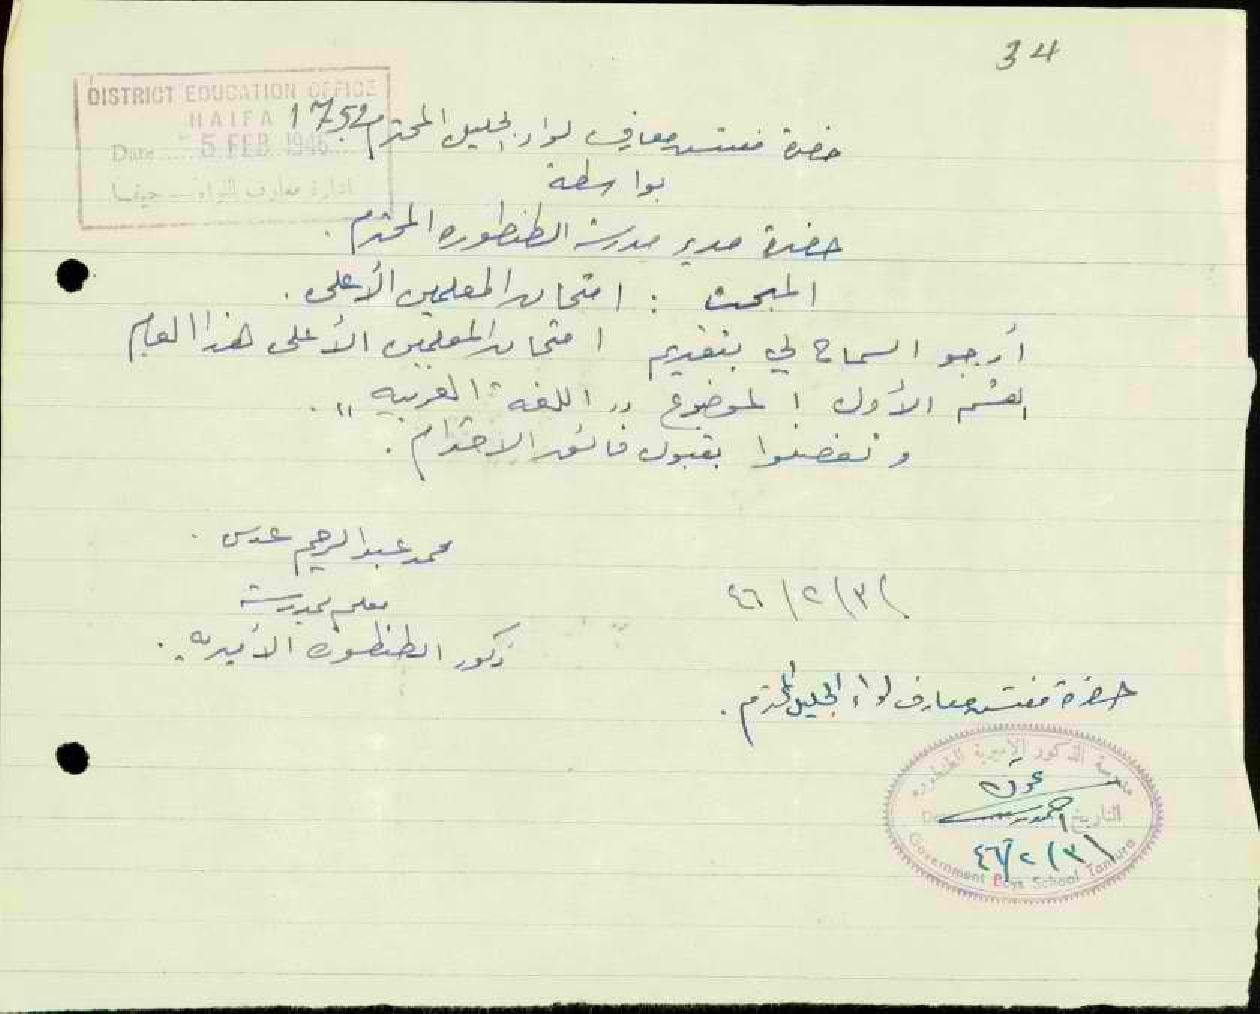 34
DISTRICT EDUCATION OFFICE
HAIFA 1752
Date 5 FEB 1946
ادارة معارف اللواء - حيفا
حضرة مفتش معارف لواء الجليل المحترم
بواسطة
حضرة مدير مدرسة الطنطوره المحترم .
المبحث : امتحان المعلمين الأعلى .
أرجو السماح لي بتقديم امتحان المعلمين الأعلى هذا العام
القسم الأول الموضوع " اللغة العربيه " .
وتفضلوا بقبول فائق الاحترام .
محمد عبد الرحيم عدس .
معلم بمدرسة
ذكور الطنطورة الأميريه .
٤٦/٢/٣
حضرة مفتش معارف لواء الجليل المحترم .
مدرسة الذكور الاميرية الطنطوره
التاريخ
٤٦/٢/٣
Government Boys School Tantura